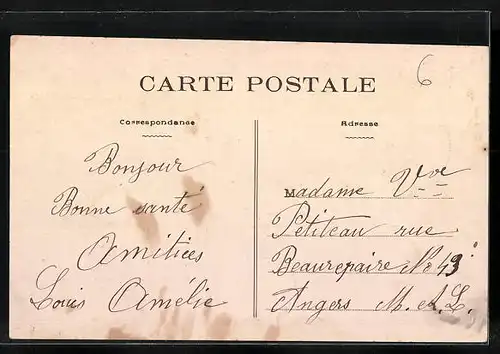 6
CARTE POSTALE
Correspondance
Adresse
Bonjour
Bonne santé
Amitiées
Louis Amélie
Madame Vve
Petiteau rue
Beaurepaire No 49
Angers M. &. L.